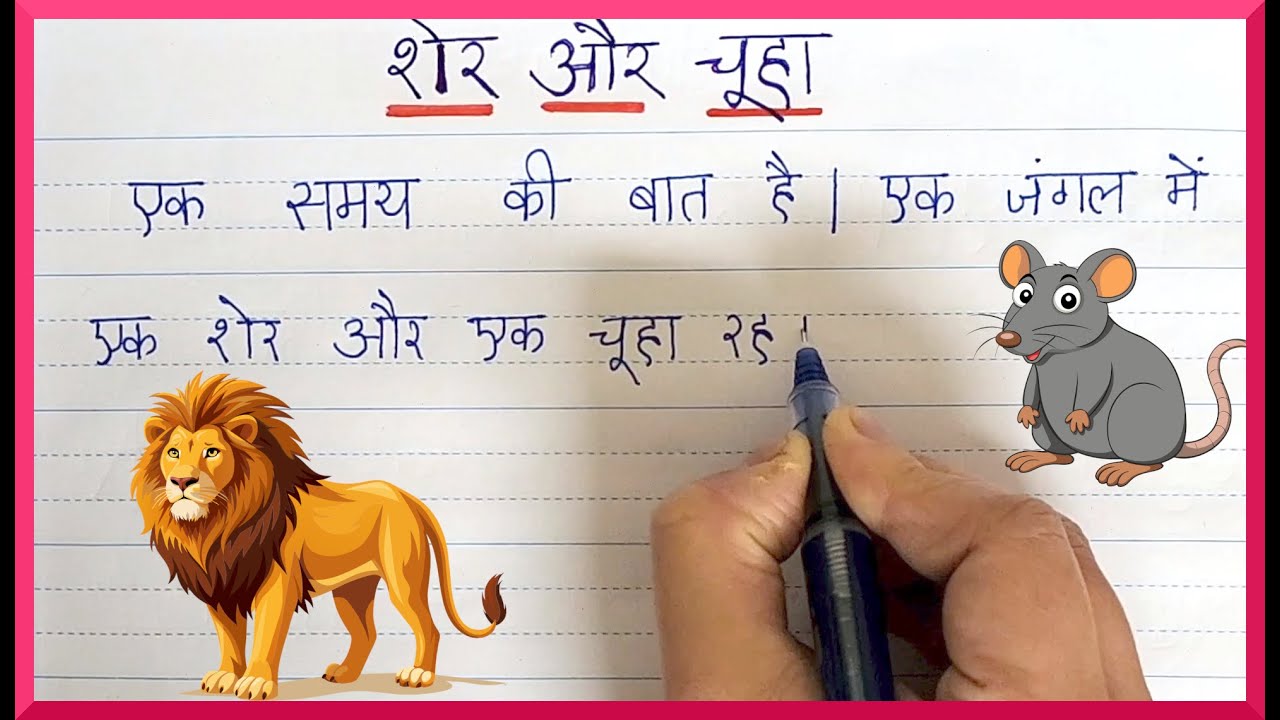 शेर और चूहा
एक समय की बात है। एक जंगल में
एक शेर और एक चूहा रह